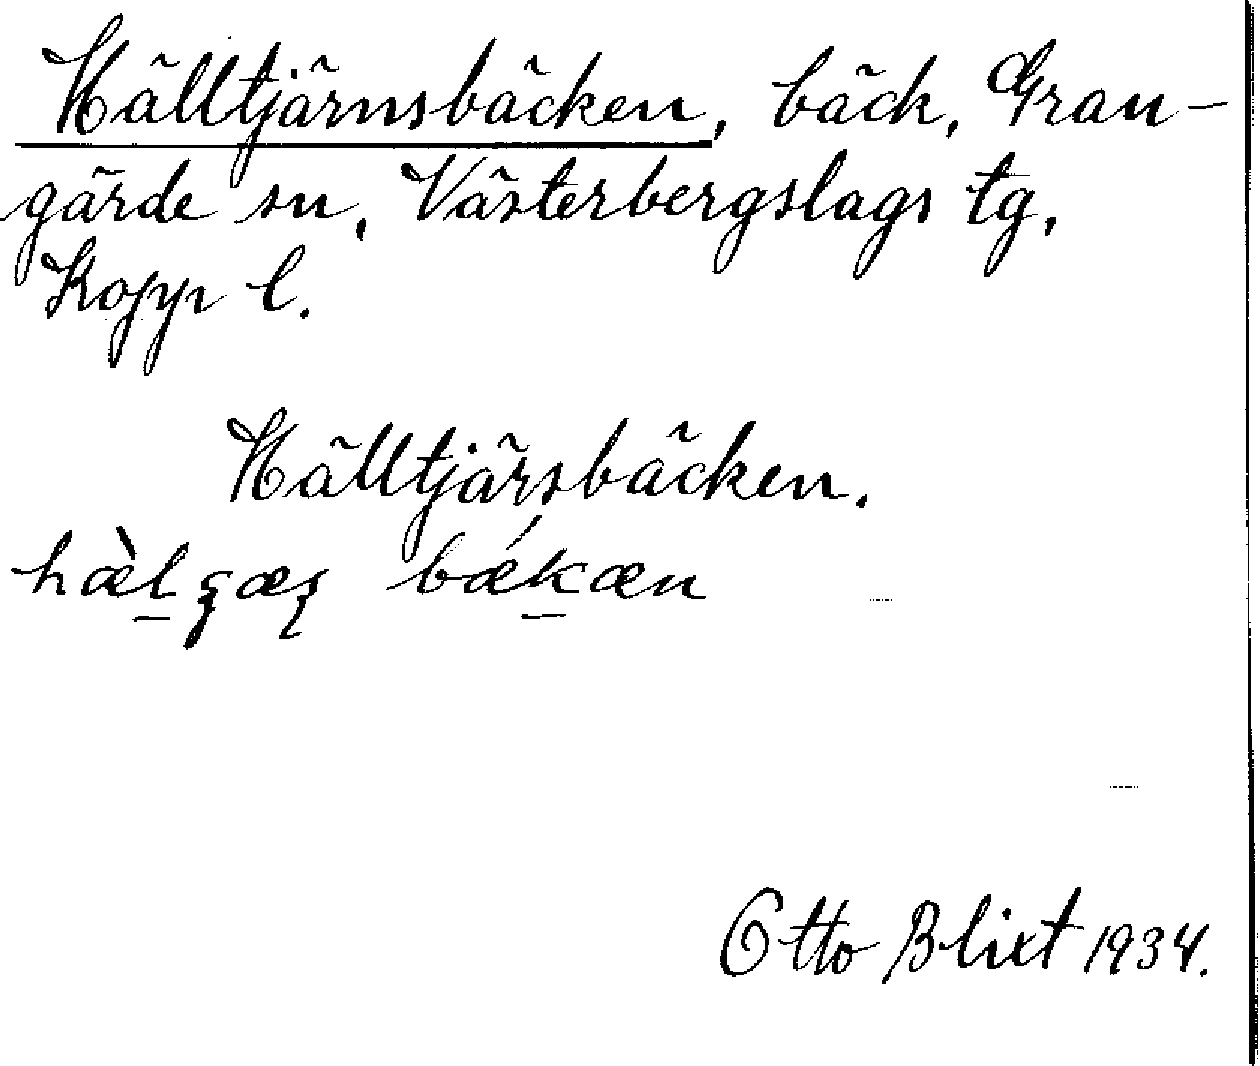 Hälltjärnsbäcken, bäck, Gran-
gärde sn, Västerbergslags tg,
Kopp l.
Hälltjärsbäcken.
hæ̀l̠ʂæʂ bǽk̠æn
Otto Blixt 1934.